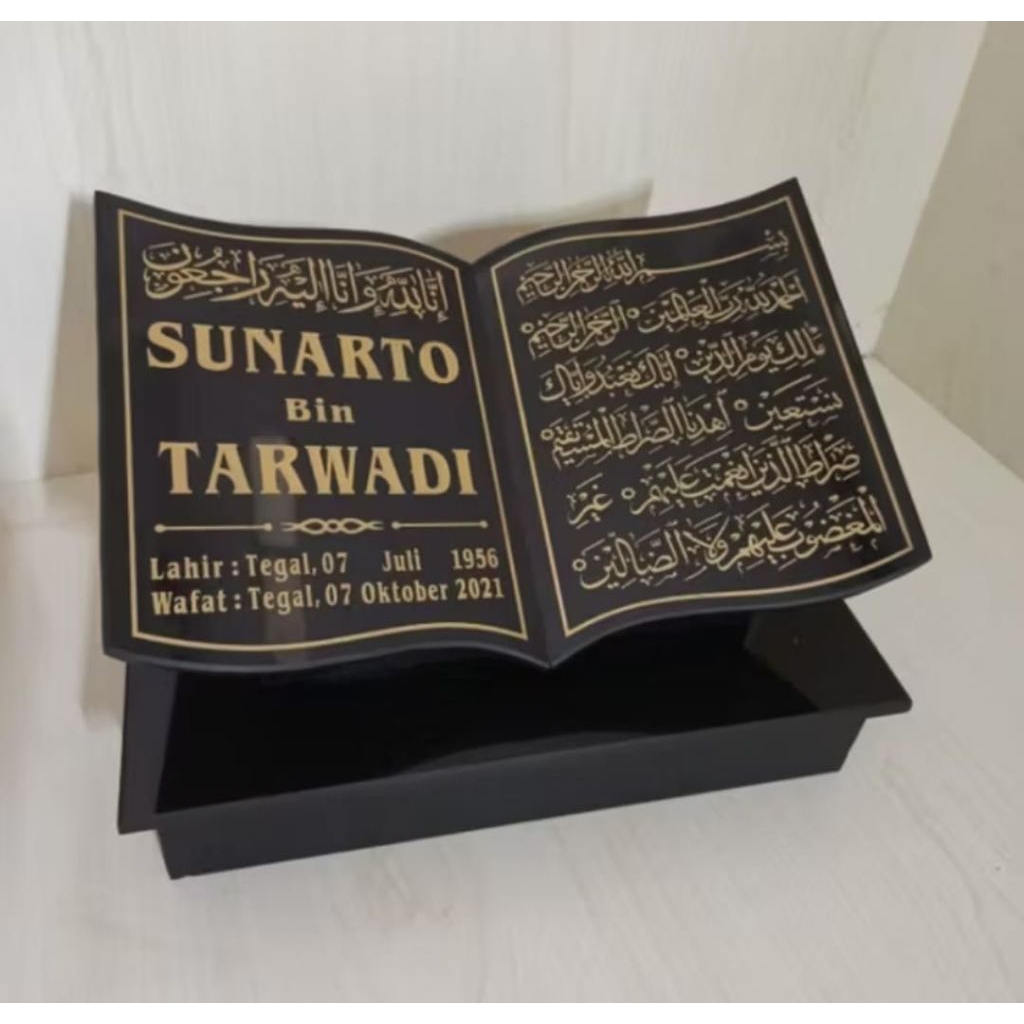 إنا لله وإنا إليه راجعون
SUNARTO
Bin
TARWADI
Lahir : Tegal, 07 Juli 1956
Wafat : Tegal, 07 Oktober 2021
بسم الله الرحمن الرحيم
الحمد لله رب العالمين الرحمن الرحيم
مالك يوم الدين إياك نعبد وإياك
نستعين اهدنا الصراط المستقيم
صراط الذين أنعمت عليهم غير
المغضوب عليهم ولا الضالين